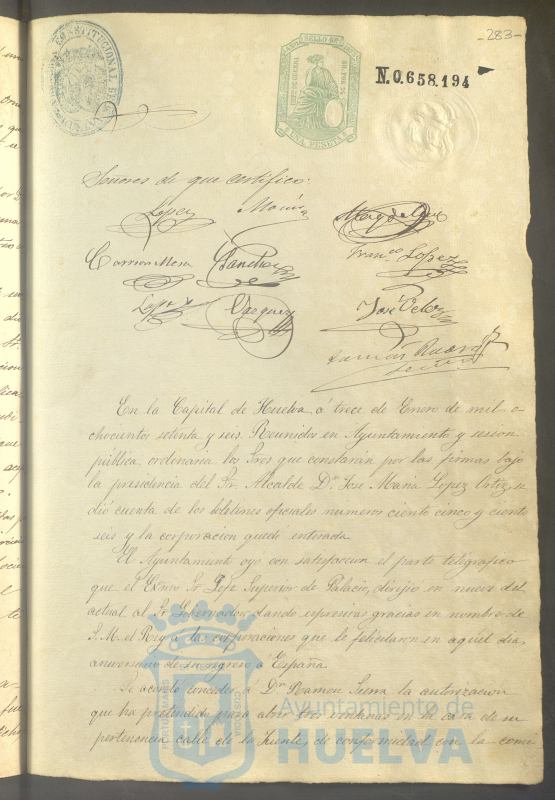 -283-
CONSTITUCIONAL
UNA PESETA
N.0.658.194
Señores de que certifico:
Lopez Macia
Carrion Mora Sanchez Franco Lopez
Lopez Vazquez José Velez
En la Capital de Huelva á trece de Enero de mil o-
chocientos setenta y seis. Reunidos en Ayuntamiento y sesion
pública ordinaria los Sres que constarán por las firmas bajo
la presidencia del Sr. Alcalde Dn. José María Lopez Ortiz, se
dió cuenta de los boletines oficiales numeros ciento cinco y ciento
seis y la corporacion quedó enterada.
El Ayuntamiento oyó con satisfaccion el parte telegrafico
que el Exmo Sr. Jefe Superior de Palacio, dirijió en nueve del
actual al Sr. Gobernador dando espresivas gracias en nombre de
S. M. el Rey á las corporaciones que le felicitaron en aquel dia,
aniversario de su regreso á España.
Se acordó conceder á Dn. Ramon Serna la autorizacion
que ha pretendido para abrir tres ventanas en la casa de su
pertenencia calle de la Fuente, de conformidad con la comi
Ayuntamiento de
HUELVA